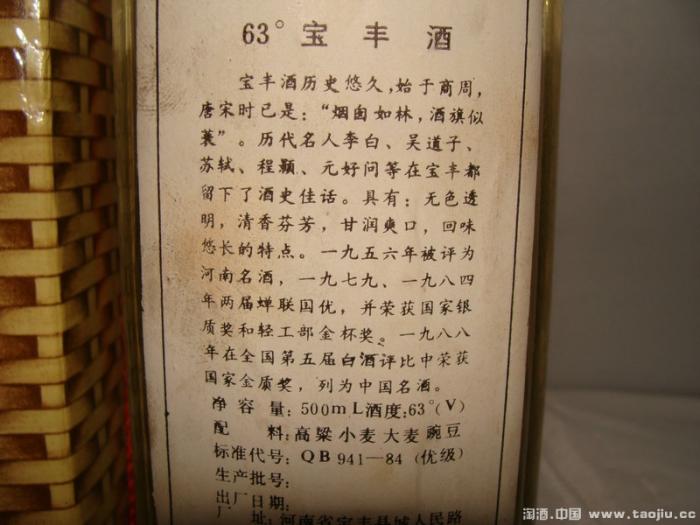 63° 宝丰酒
宝丰酒历史悠久,始于商周,
唐宋时已是:“烟囱如林,酒旗似
蓑”。历代名人李白、吴道子、
苏轼、程颢、元好问等在宝丰都
留下了酒史佳话。具有:无色透
明,清香芬芳,甘润爽口,回味
悠长的特点。一九五六年被评为
河南名酒,一九七九、一九八四
年两届蝉联国优,并荣获国家银
质奖和轻工部金杯奖。一九八八
年在全国第五届白酒评比中荣获
国家金质奖,列为中国名酒。
净容量:500mL酒度:63°(V)
配料:高粱小麦大麦豌豆
标准代号:QB941—84(优级)
生产批号:
出厂日期:
厂址:河南省宝丰县城人民路
淘酒.中国 www.taojiu.cc